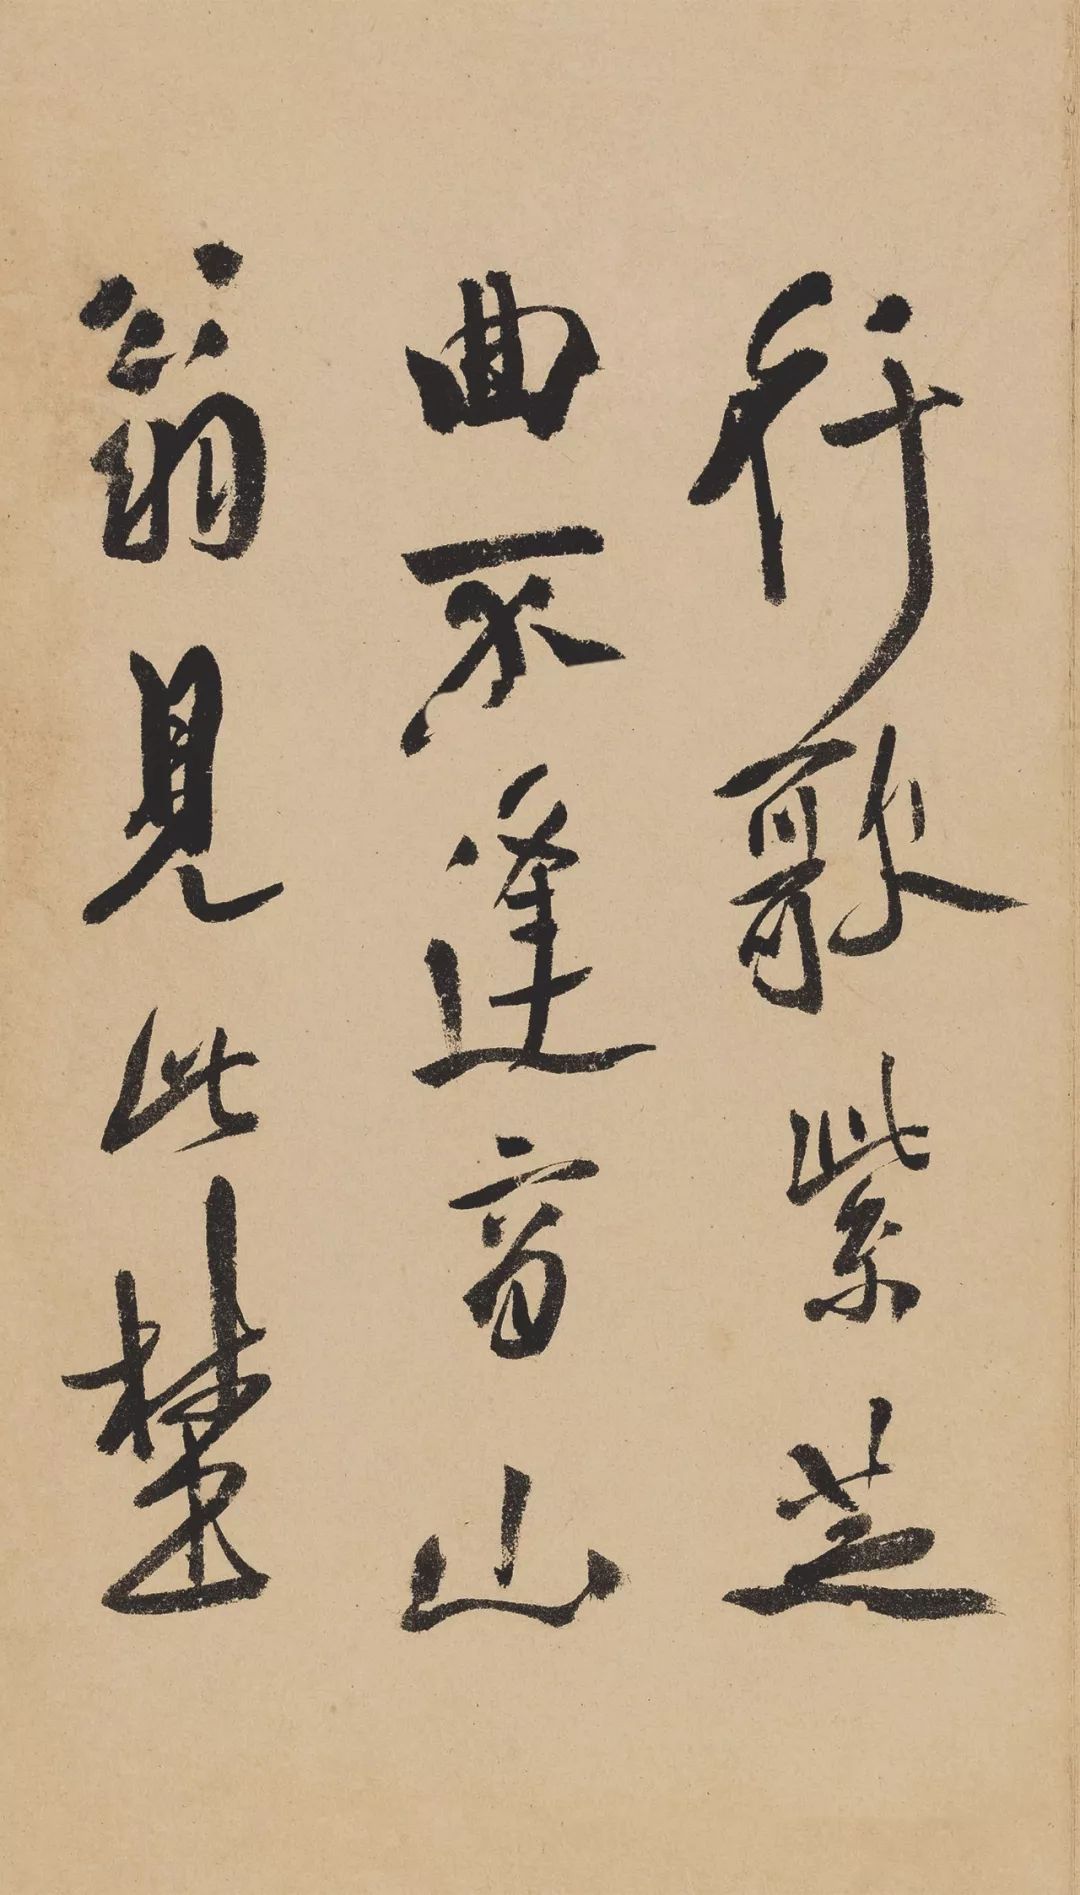 行歌紫芝
曲不逢商山
翁見此楚